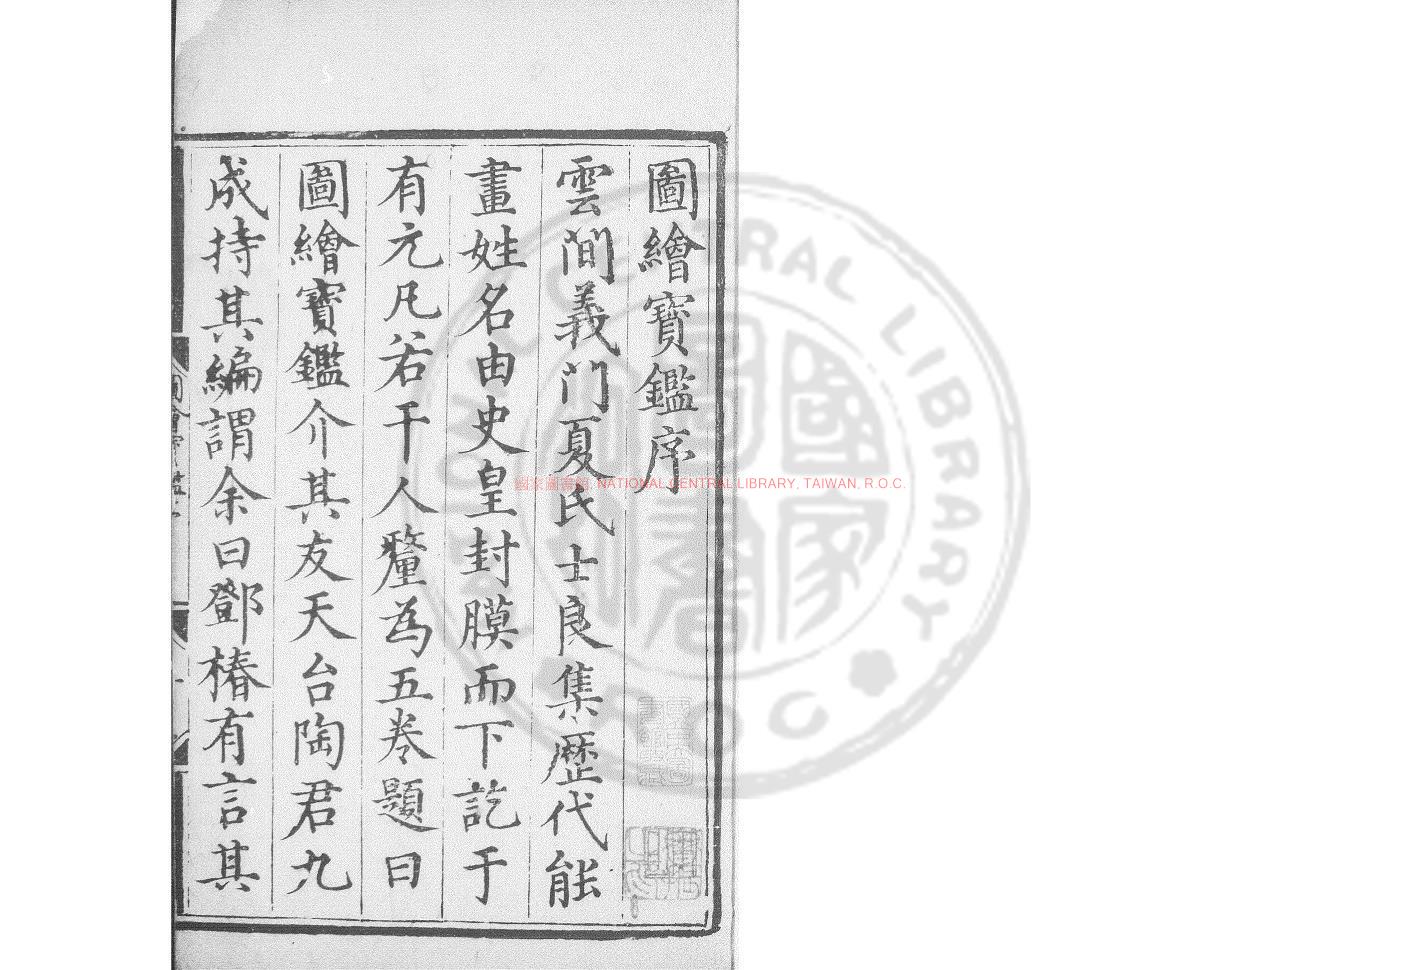 圖繪寶鑑序
雲間義门夏氏士良集歷代能
畫姓名由史皇封膜而下訖于
有元凡若干人釐為五卷題曰
圖繪寶鑑介其友天台陶君九
成持其編謂余曰鄧椿有言其
國家圖書館, NATIONAL CENTRAL LIBRARY, TAIWAN, R.O.C.
國家圖書館
CENTRAL LIBRARY
R.O.C